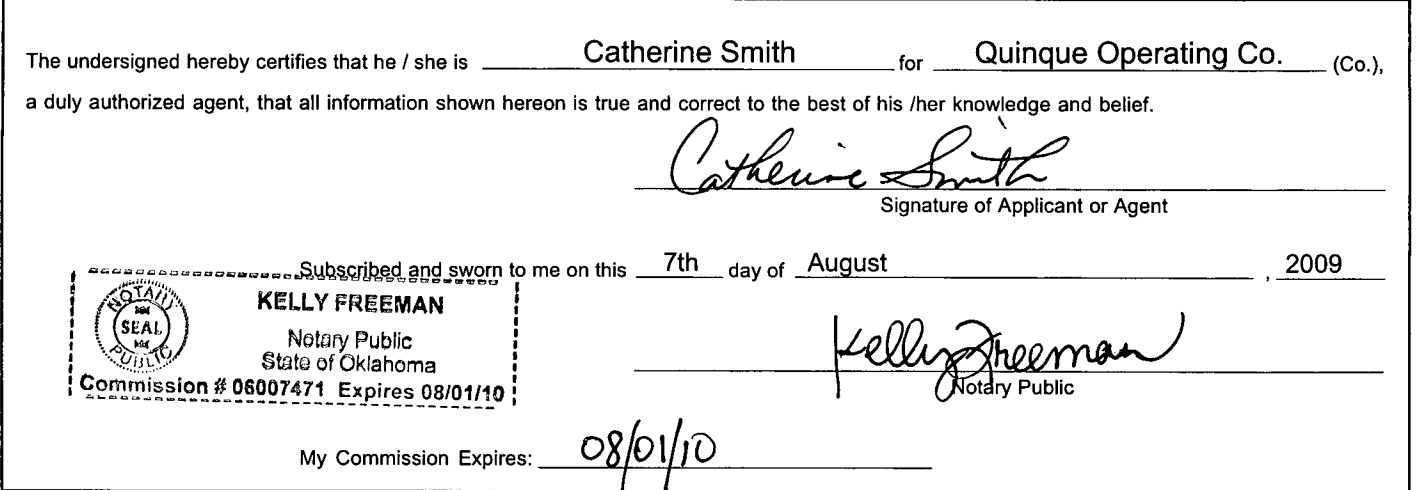 The undersigned hereby certifies that he / she is Catherine Smith for Quinque Operating Co. (Co.),
a duly authorized agent, that all information shown hereon is true and correct to the best of his /her knowledge and belief.
Catherine Smith
Signature of Applicant or Agent
Subscribed and sworn to me on this 7th day of August , 2009
NOTARY
SEAL
PUBLIC
KELLY FREEMAN
Notary Public
State of Oklahoma
Commission # 06007471 Expires 08/01/10
Kelly Freeman
Notary Public
My Commission Expires: 08/01/10